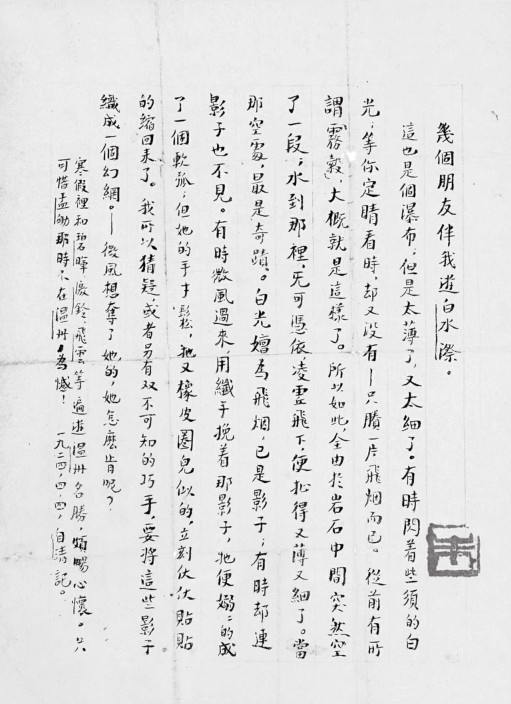 幾個朋友伴我遊白水漈。
這也是個瀑布;但是太薄了,又太細了。有時閃着些須的白
光;等你定睛看時,却又没有——只賸一片飛烟而已。從前有所
謂「霧縠」大概就是這樣了。所以如此,全由於岩石中間突然空
了一段;水到那裡,无可憑依,凌虛飛下,便扯得又薄又細了。當
那空處,最是奇蹟。白光嬗爲飛烟,已是影子;有時却連
影子也不見。有時微風過來,用纖手挽着那影子,牠便嫋〻的成
了一個軟弧;但她的手才鬆,牠又橡皮圈兒似的,立刻伏伏貼貼
的縮回來了。我可以猜疑,或者另有双不可知的巧手,要將這些影子
織成一個幻網。——微風想奪了她的,她怎麽肯呢?
寒假裡和碧暉 飛雲等遍遊温州名勝,頗暢心懷。只
可惜孟劬那時不在温州,爲憾! 一九二四,四,四,自清記。